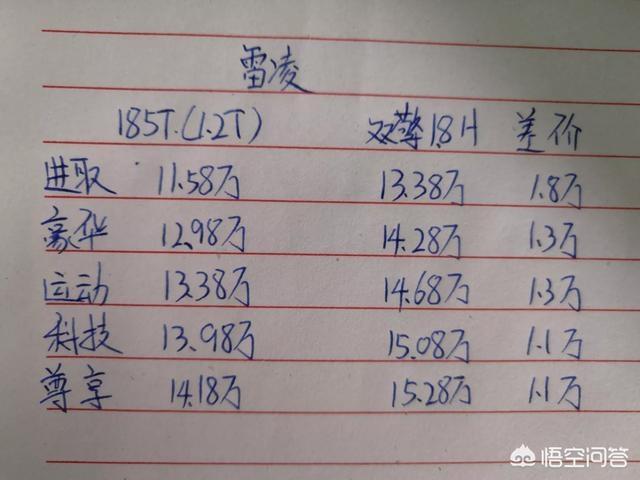 雷凌
185T.(1.2T) 双擎1.8H 差价
进取 11.58万 13.38万 1.8万
豪华 12.98万 14.28万 1.3万
运动 13.38万 14.68万 1.3万
科技 13.98万 15.08万 1.1万
尊享 14.18万 15.28万 1.1万
悟空问答